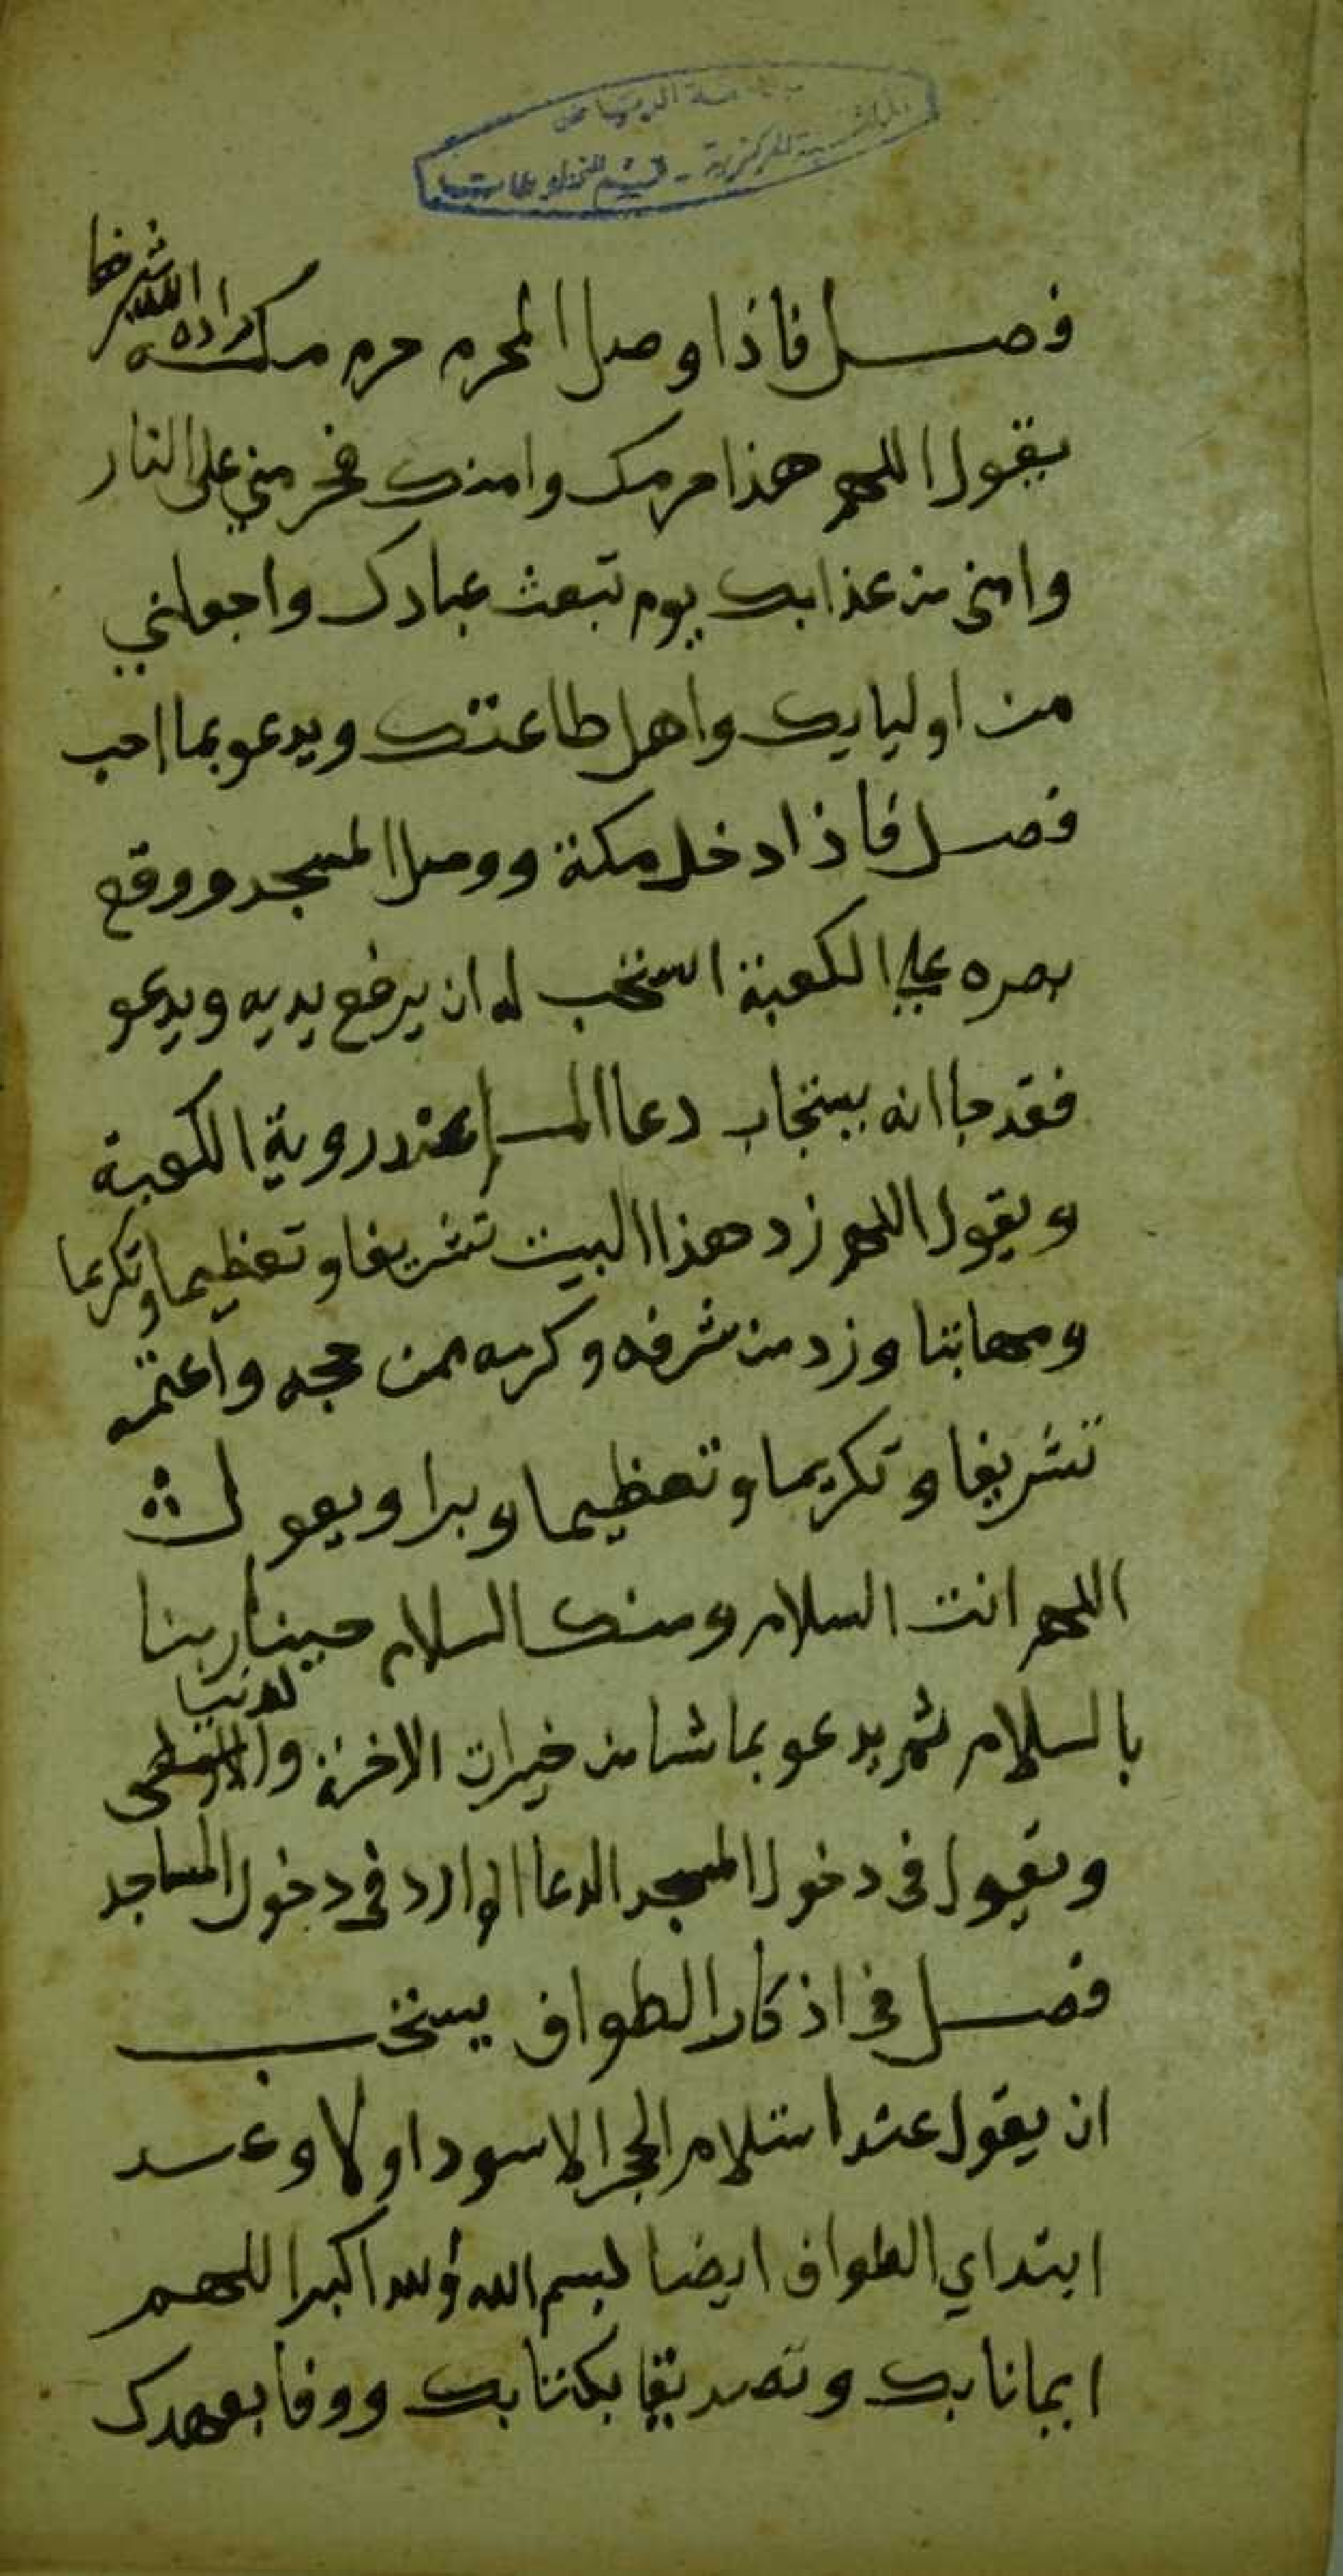 جامعة الرياض
المكتبة المركزية - قسم المخطوطات
فصل فاذا وصل المحرم حرم مكه زاده الله شرفا
يقول اللهم هذا حرمك وامنك فحرمني على النار
وامني من عذابك يوم تبعث عبادك واجعلني
من اوليايك واهل طاعتك ويدعو بما احب
فصل فاذا دخل مكة ووصل المسجد ووقع
بصره على الكعبة استحب له ان يرفع يديه ويدعو
فقد جا انه يستجاب دعا المسلم عند روية الكعبة
ويقول اللهم زد هذا البيت تشريفا وتعظيما وتكريما
ومهابتا وزد من شرفه وكرمه ممن حجه واعتمره
تشريفا وتكريما وتعظيما وبرا ويقول
اللهم انت السلام ومنك السلام حينا ربنا
بالسلام ثم يدعو بما شا من خيرات الاخرة والدنيا
ويقول في دخول المسجد الدعا الوارد في دخول المساجد
فصل في اذكار الطواف يستحب
ان يقول عند استلام الحجر الاسود اولا وعند
ابتداي الطواف ايضا بسم الله والله اكبر اللهم
ايمانا بك وتصديقا بكتابك ووفا بعهدك